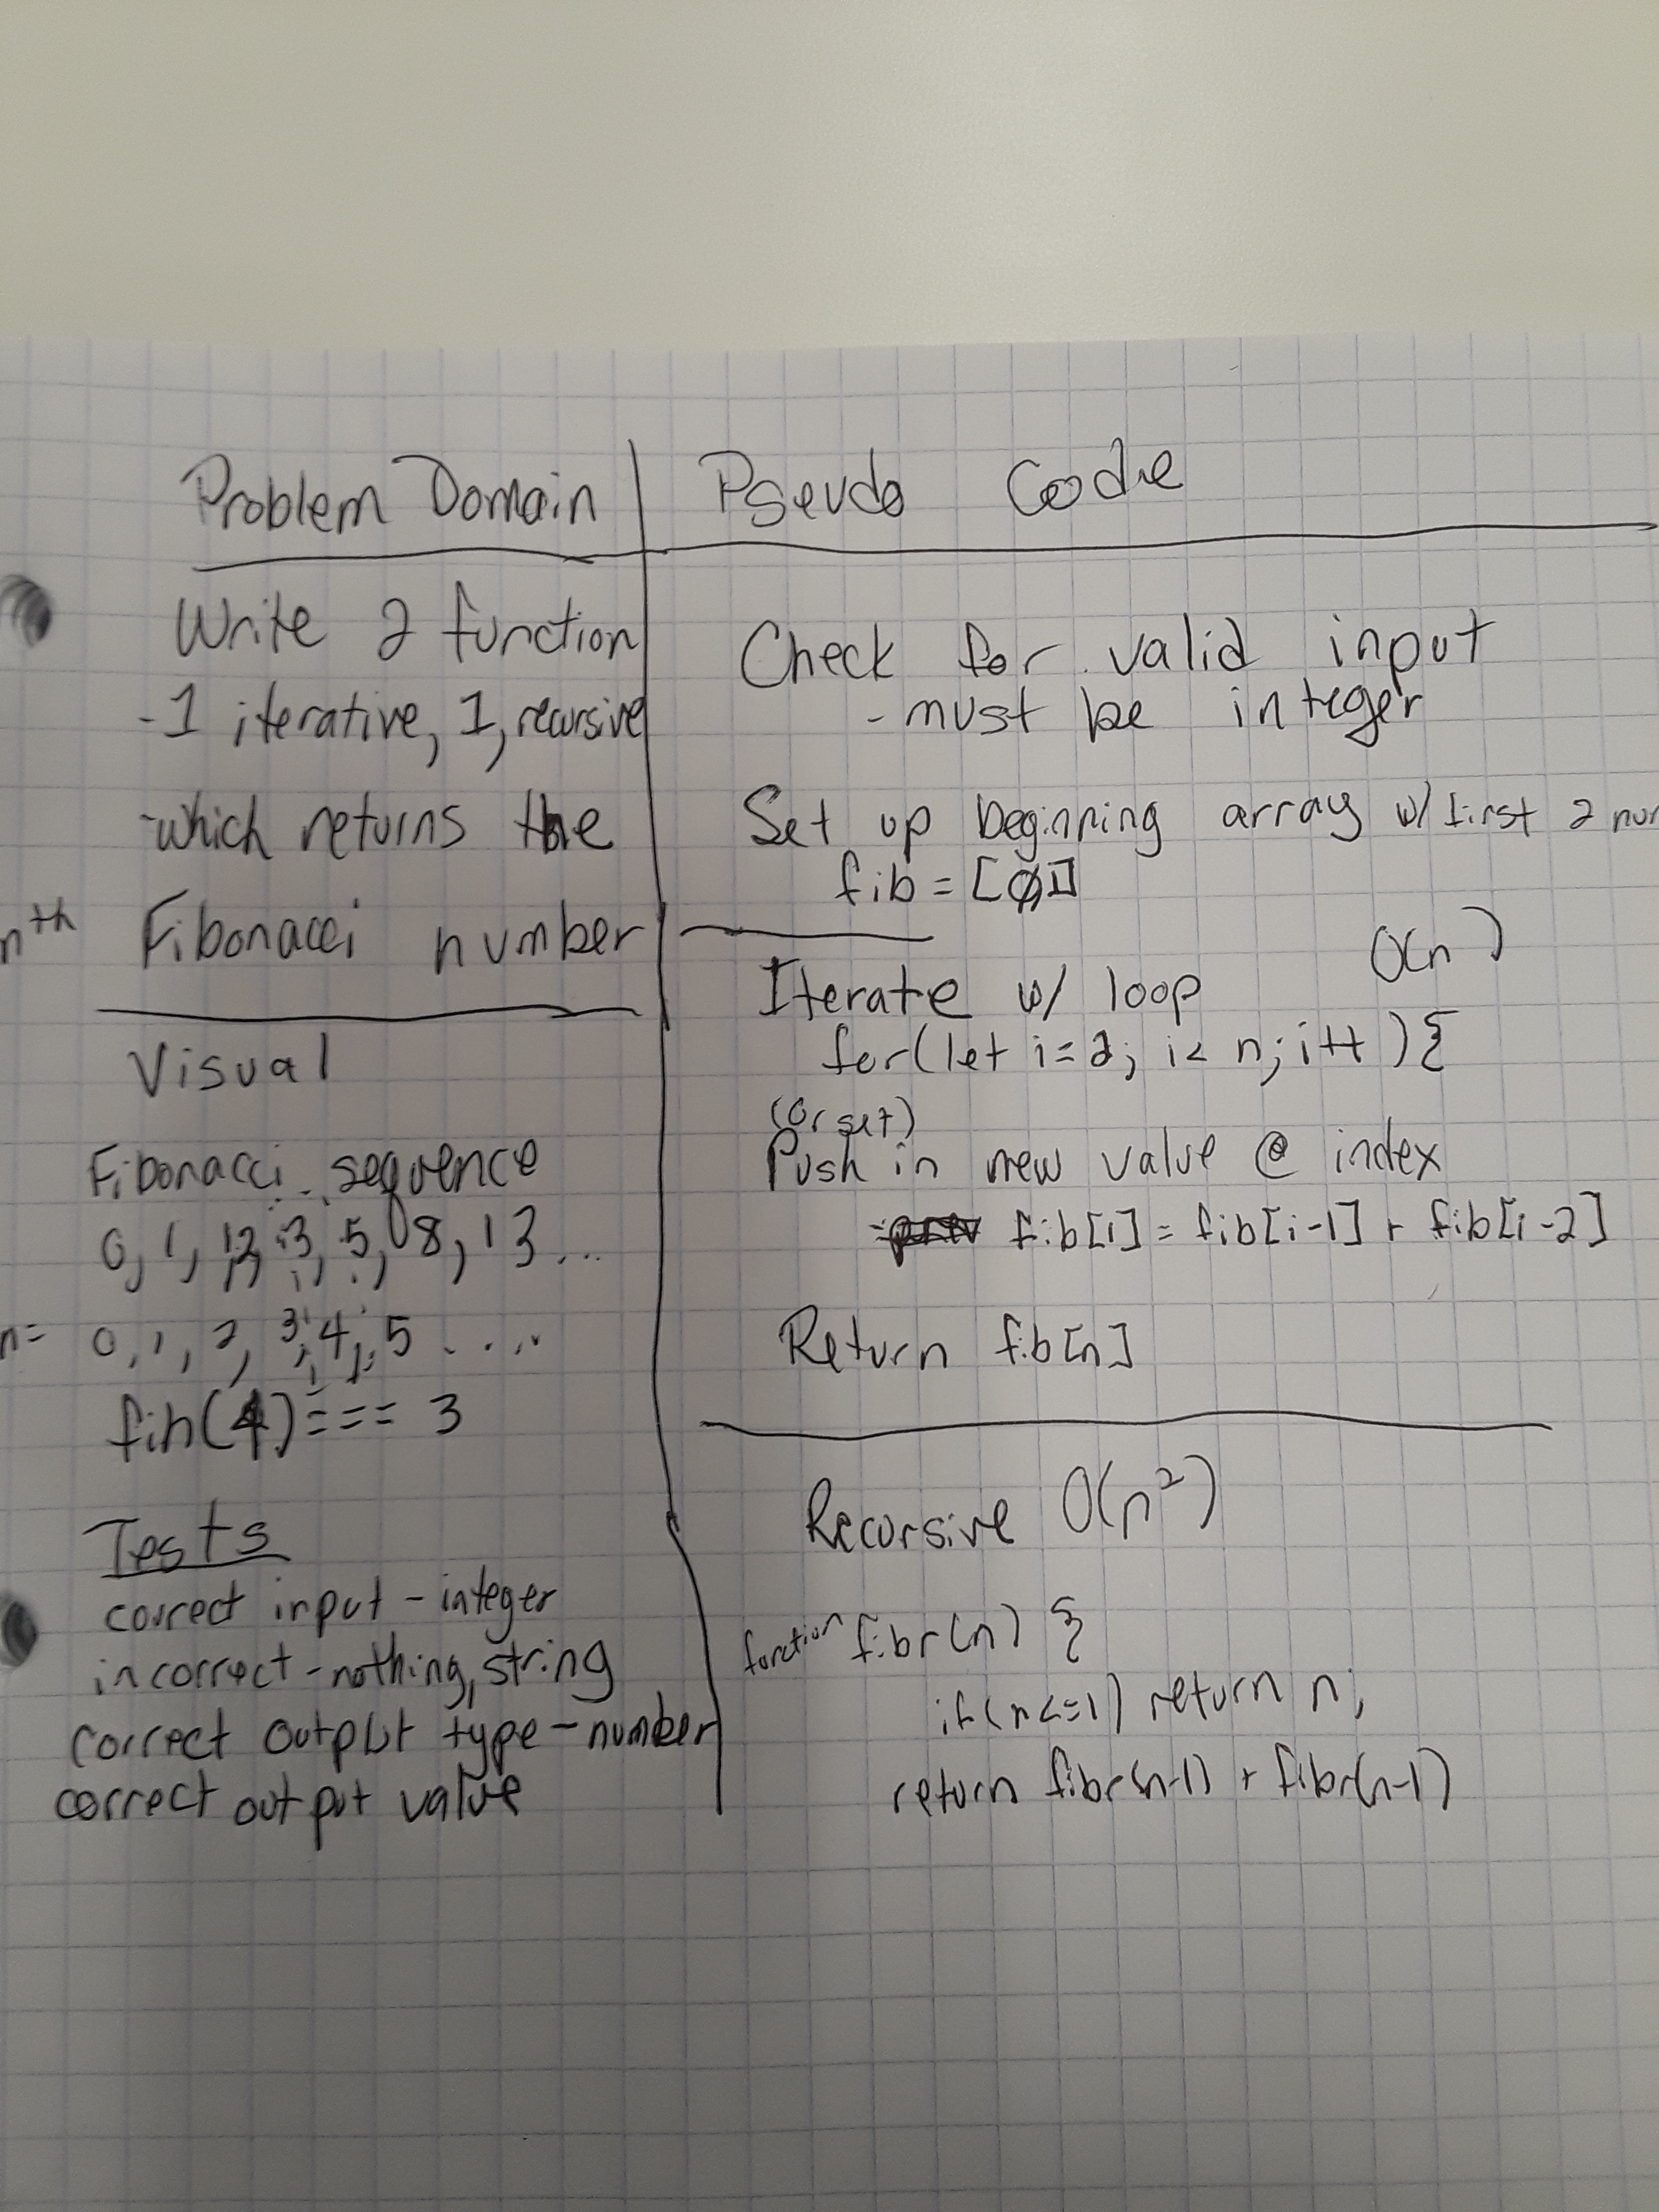 Problem Domain
Write 2 function
-1 iterative, 1, recursive
-which returns the
nth Fibonacci number
Visual
Fibonacci sequence
0, 1, 1, 2, 3, 5, 8, 13...
n= 0, 1, 2, 3, 4, 5 ....
fib(4) === 3
Tests
correct input - integer
incorrect - nothing, string
correct output type - number
correct output value
Pseudo Code
Check for valid input
- must be integer
Set up beginning array w/ first 2 num
fib = [0,1]
O(n)
Iterate w/ loop
for(let i=2; i< n; i++){
(or set)
Push in new value @ index
fib[i] = fib[i-1] + fib[i-2]
Return fib[n]
Recursive O(n²)
function fibr(n) {
if(n<=1) return n;
return fibr(n-1) + fibr(n-1)